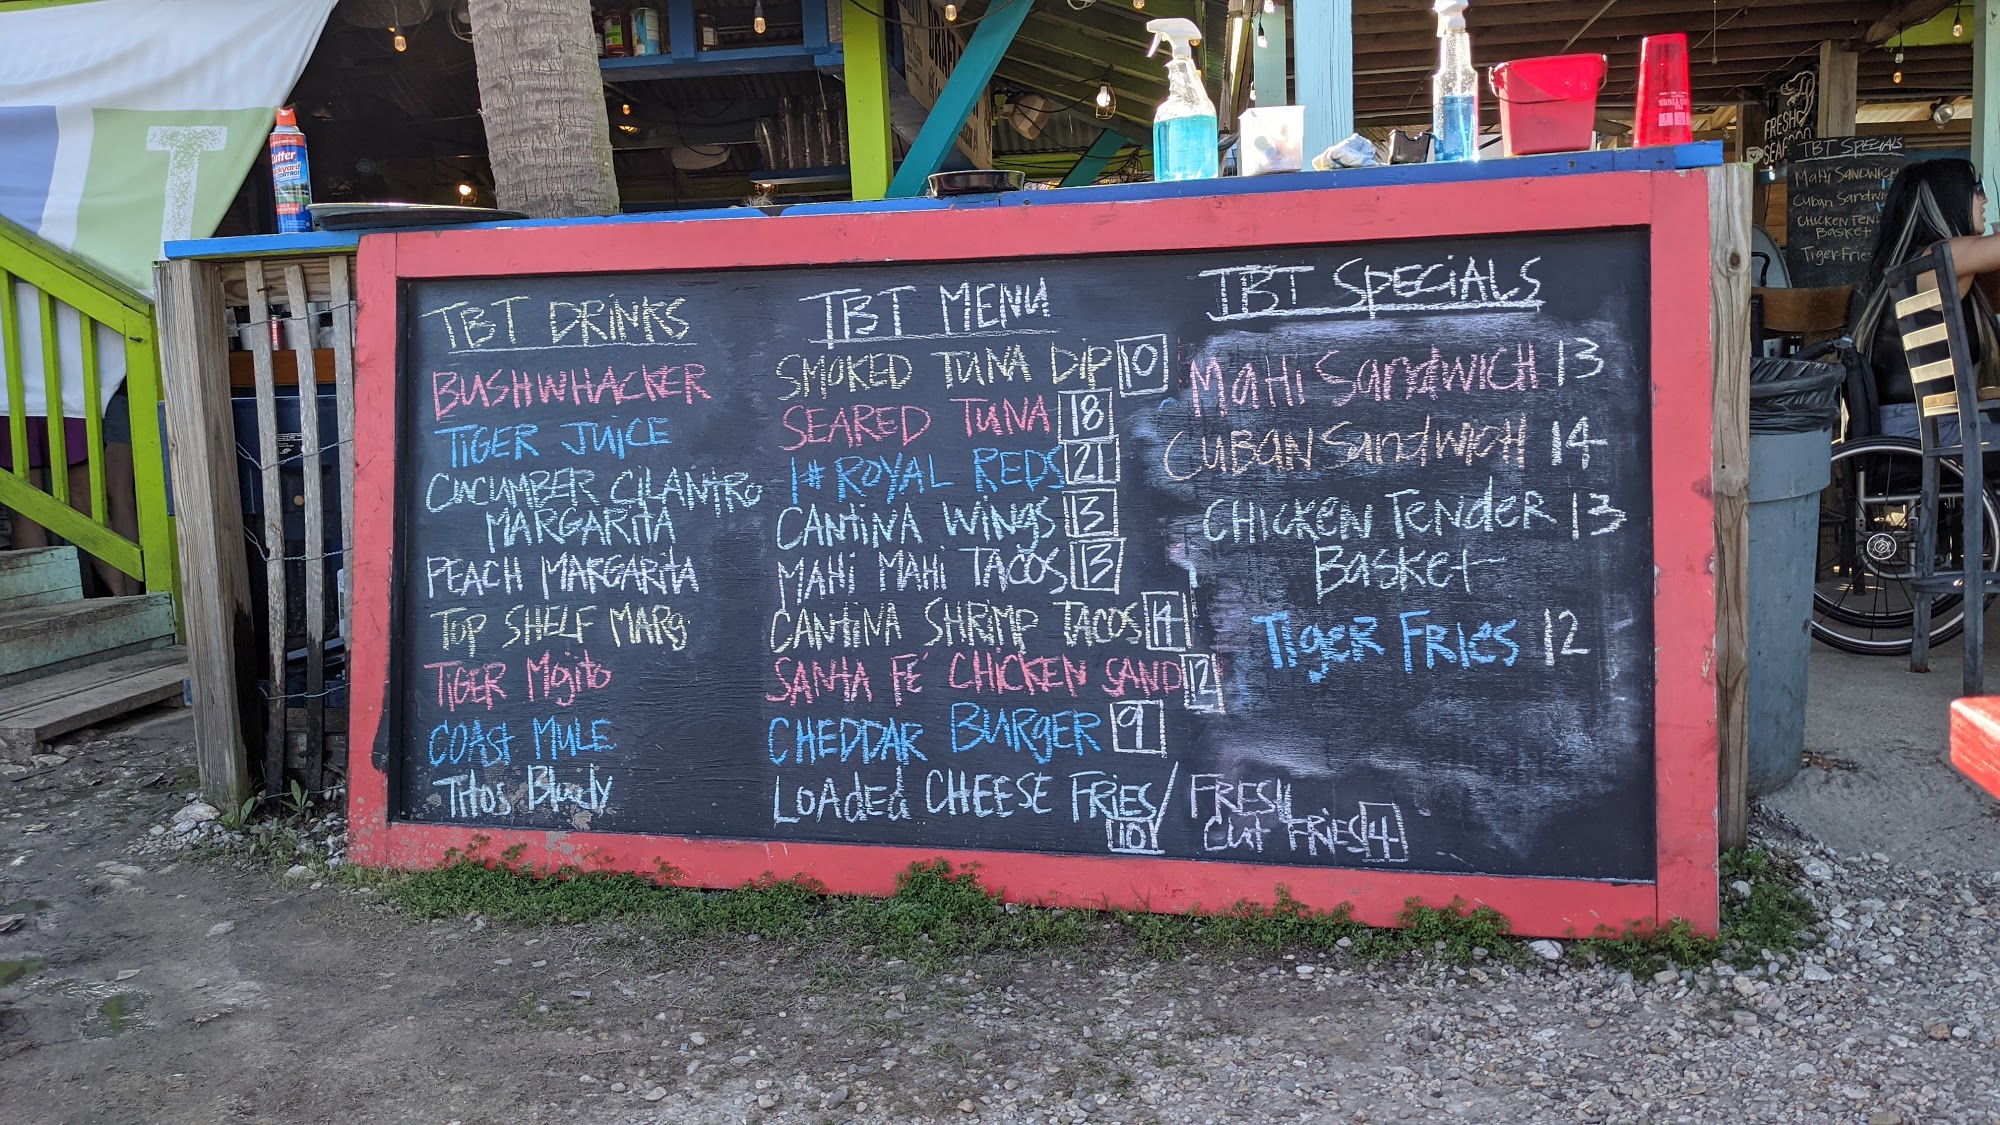 TBT DRINKS
BUSHWHACKER
TIGER JUICE
CUCUMBER CILANTRO
MARGARITA
PEACH MARGARITA
TOP SHELF MARG.
TIGER Mojito
COAST MULE
Titos Bloody
TBT MENU
SMOKED TUNA DIP 10
SEARED TUNA 18
1# ROYAL REDS 21
CANTINA WINGS 13
MAHI MAHI TACOS 13
CANTINA SHRIMP TACOS 14
SANTA FE CHICKEN SAND 12
CHEDDAR BURGER 9
LOADED CHEESE FRIES/
10
FRESH
CUT FRIES 4
TBT SPECIALS
MAHI SANDWICH 13
CUBAN SANDWICH 14
CHICKEN TENDER 13
BASKET
TIGER FRIES 12
T
Cutter
DRAFT
FRESH
TBT SPECIALS
MAHI SANDWICH
CUBAN
CHICKEN
BASKET
Tiger